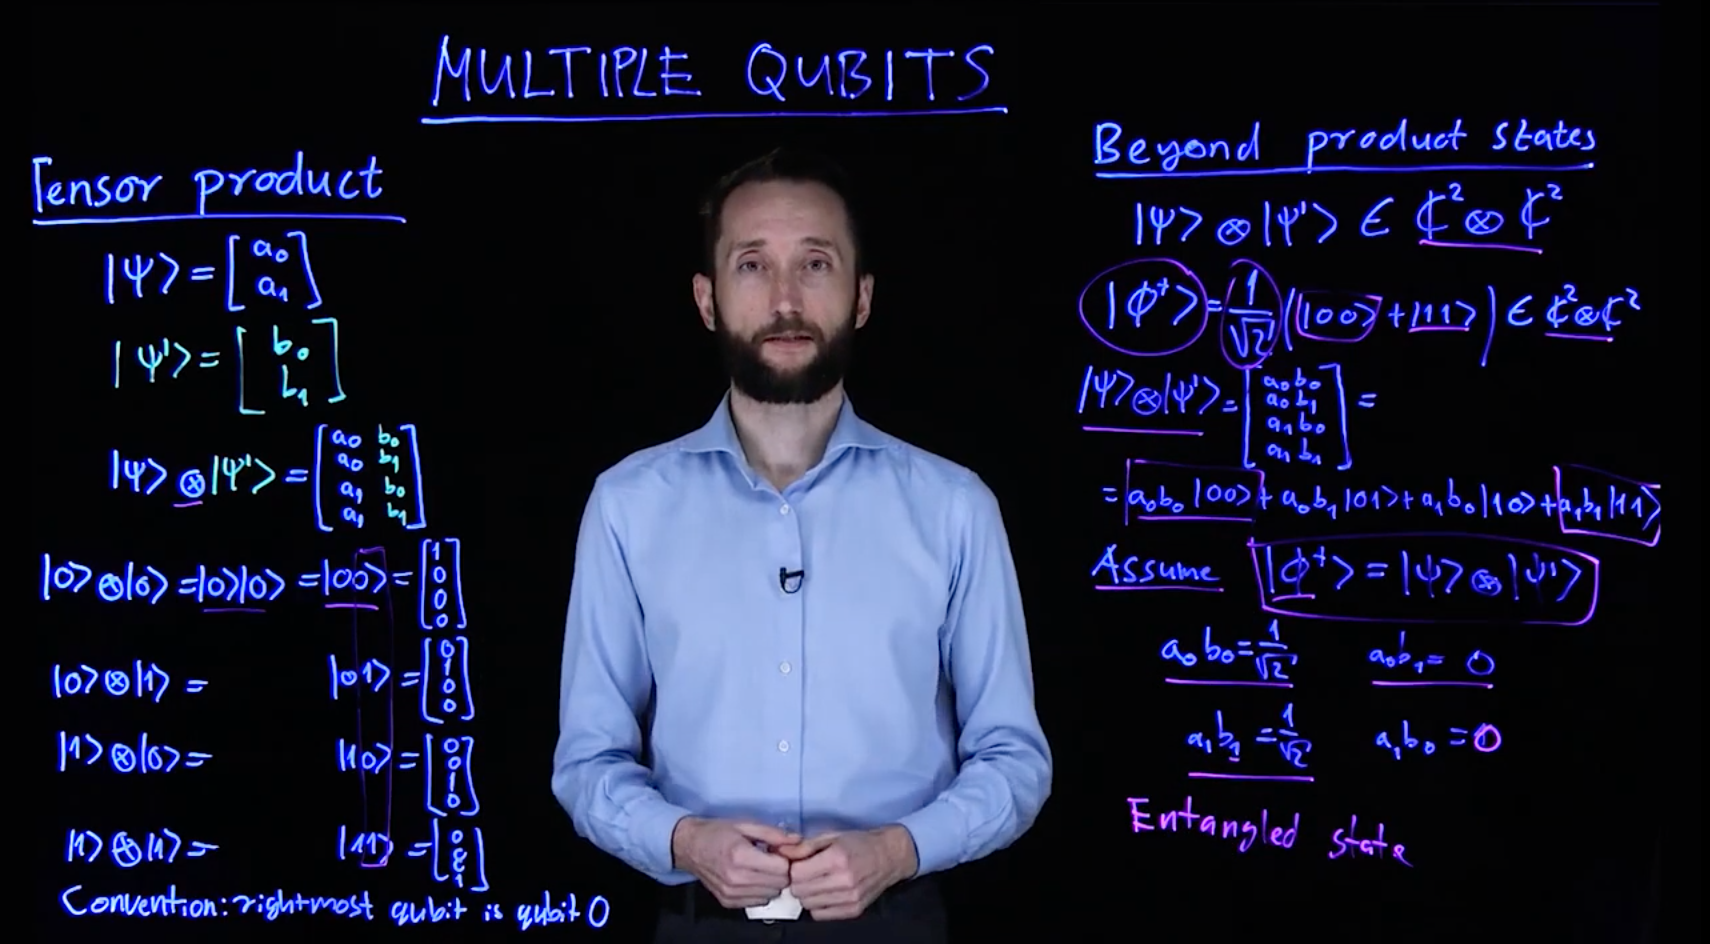 MULTIPLE QUBITS
Tensor product
|ψ> = [a₀ a₁]
|ψ'> = [b₀ b₁]
|ψ> ⊗ |ψ'> = [a₀ b₀
a₀ b₁
a₁ b₀
a₁ b₁]
|0> ⊗ |0> = |0>|0> = |00> = [1 0 0 0]
|0> ⊗ |1> = |01> = [0 1 0 0]
|1> ⊗ |0> = |10> = [0 0 1 0]
|1> ⊗ |1> = |11> = [0 0 0 1]
Convention: rightmost qubit is qubit 0
Beyond product states
|ψ> ⊗ |ψ'> ∈ ℂ² ⊗ ℂ²
|ϕ⁺> = 1/√2 (|00> + |11>) ∈ ℂ² ⊗ ℂ²
|ψ> ⊗ |ψ'> = [a₀b₀
a₀b₁
a₁b₀
a₁b₁] =
= a₀b₀|00> + a₀b₁|01> + a₁b₀|10> + a₁b₁|11>
Assume |ϕ⁺> = |ψ> ⊗ |ψ'>
a₀b₀ = 1/√2 a₀b₁ = 0
a₁b₁ = 1/√2 a₁b₀ = 0
Entangled state